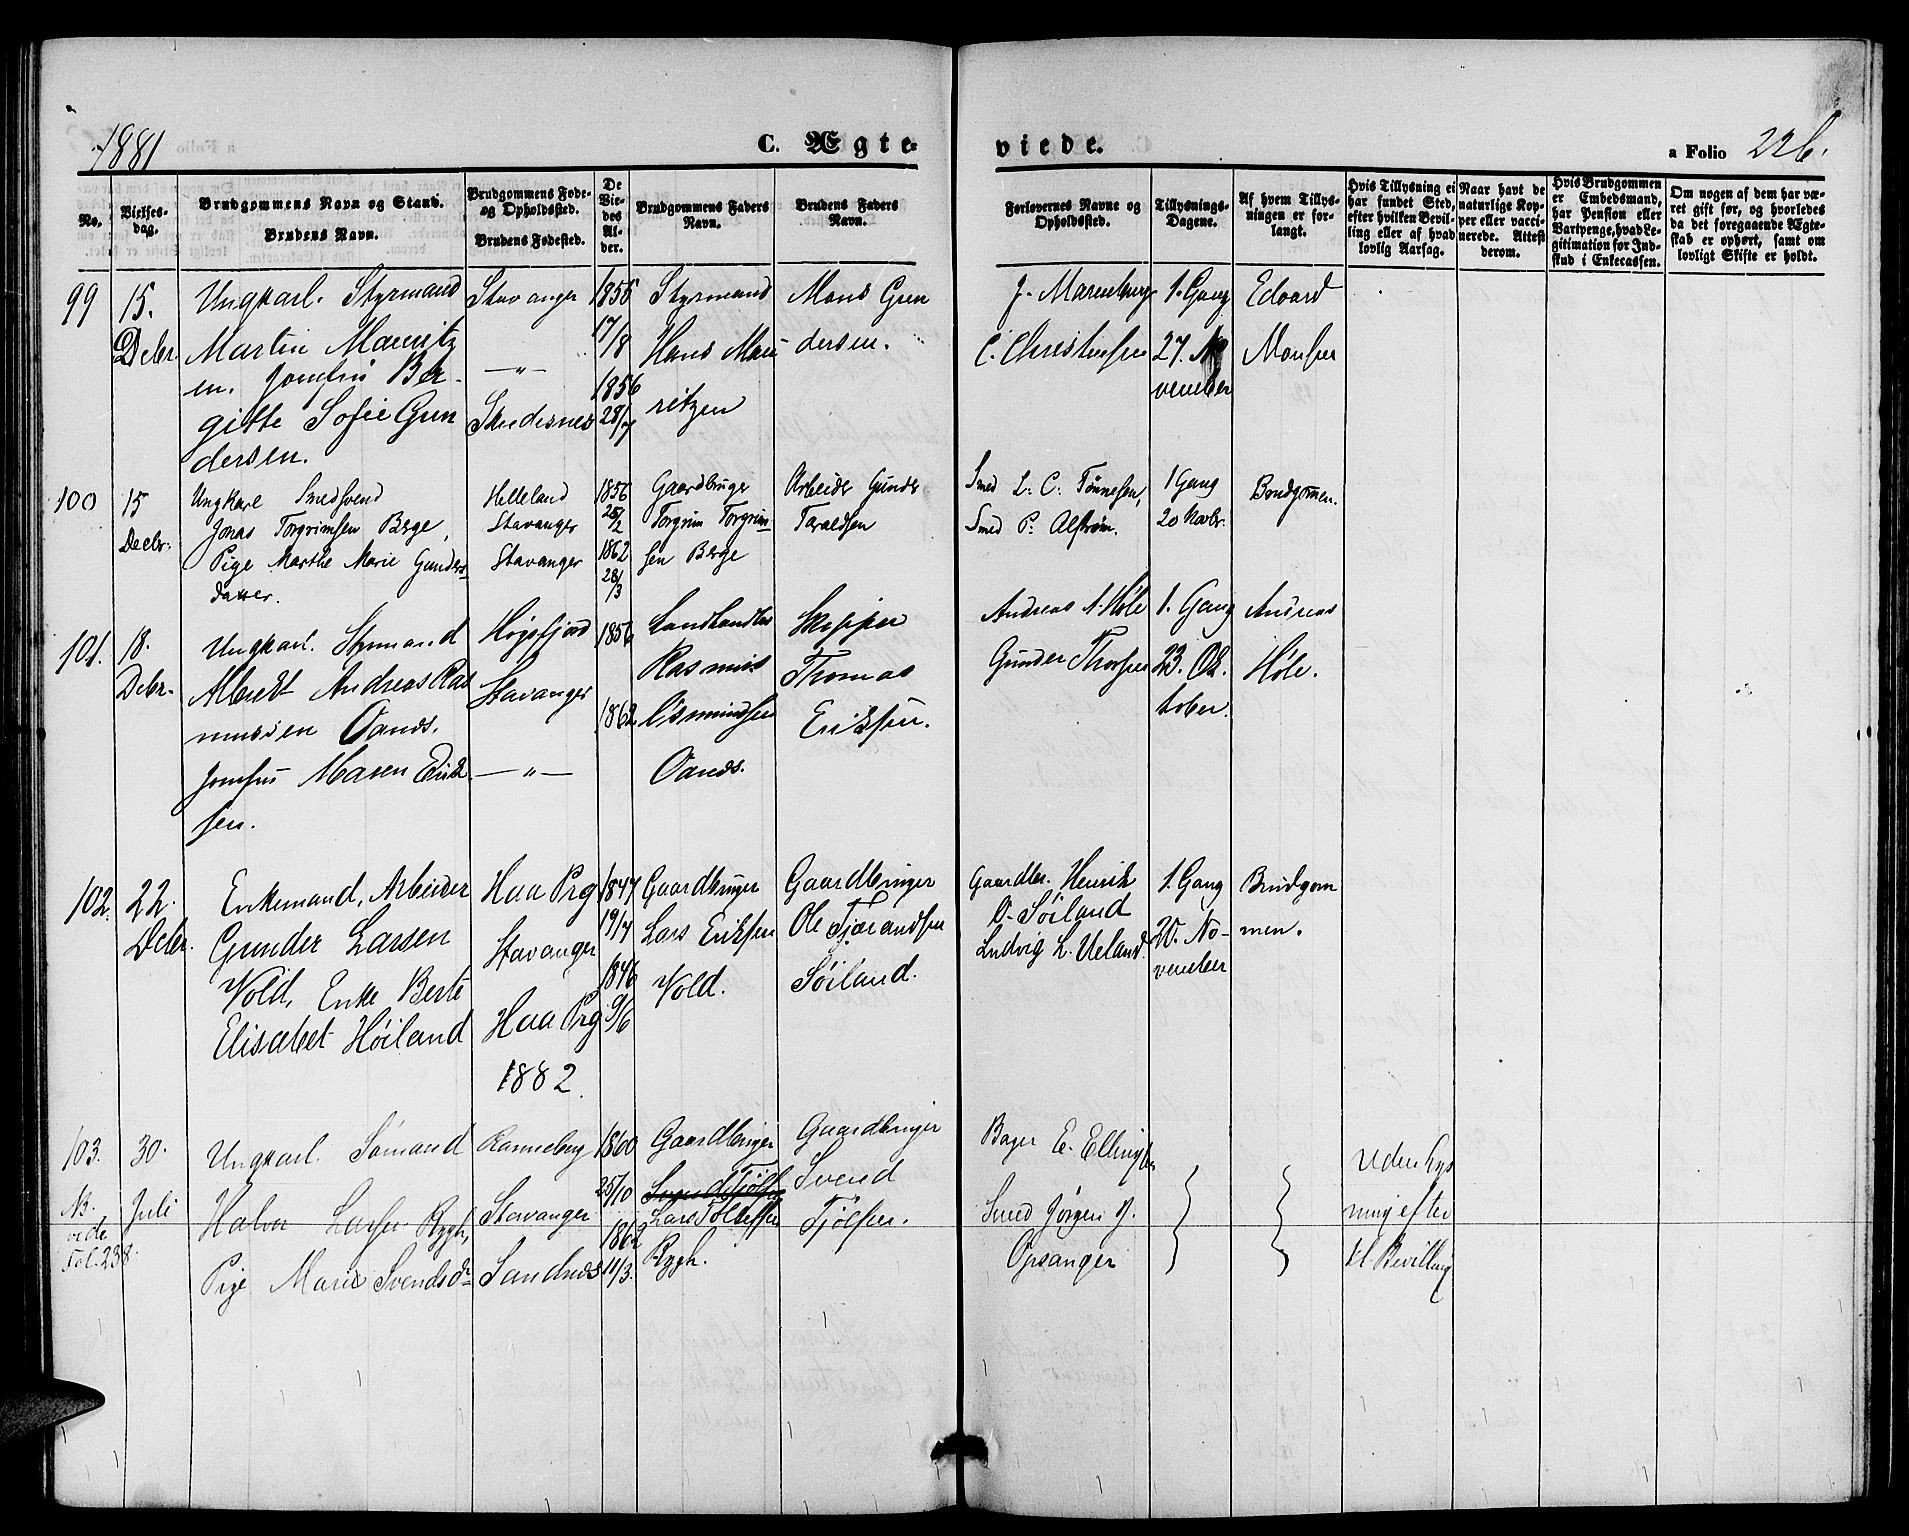 1881
C. Ægteviede.
a Folio 226.
No.
Vielses-
dag.
Brudgommens Navn og Stand.
Brudens Navn.
Brudgommens Føde-
og Opholdssted.
Brudens Fødested.
De
Vie-
des
Al-
der.
Brudgommens Faders
Navn.
Brudens Faders
Navn.
Forlovernes Navne og
Opholdssted.
Tillysnings-
Dagene.
Af hvem Tillys-
ningen er for-
langt.
Hvis Tillysning ei
har fundet Sted,
efter hvilken Bevil-
ling eller af hvad
lovlig Aarsag.
Naar havt de
naturlige Kop-
per eller vacci-
nerede. Attest
derom.
Hvis Brudgommen
er Embedsmand,
har Pension eller
Vartpenge, hvad Le-
gitimation for Ind-
skud i Enkecassen.
Om nogen af dem har væ-
ret gift før, og hvorledes
da det foregaaende Ægte-
skab er ophørt, samt om
lovligt Skifte er holdt.
99
15.
Debr.
Ungkarl. Styrmand
Martin Mauritz
en. Jomfru Ber-
gitte Sofie Gun
dersen.
Stavanger
—"—
Skudesnes
1855
17/8
1856
28/7
Styrmand
Hans Mau
ritzen
Mons Gun
dersen.
J. Marenburg
C. Christensen
1. Gang
27. No
vember
Edvard
Monsen
100
15
Decbr.
Ungkarl Smedsvend
Jonas Torgrimsen Berge,
Pige Marthe Marie Gunders-
datter.
Helleland
Stavanger
Stavanger
1856
25/2
1862
28/3
Gaardbruger
Torgrim Torgrim-
sen Berge
Arbeider Gunder
Taraldsen
Smed L. C. Tønnesen,
Smed P. Alstrøm.
1 Gang
20 Novbr.
Brudgommen.
101.
18.
Debr.
Ungkarl. Styrmand
Albredt Andreas Ras
mussen Oands.
Jomfru Maren Erik
sen.
Høgsfjord
Stavanger
—"—
1856
1862
Landhandler
Rasmus
Osmundsen
Oands.
Skipper
Thomas
Eriksen.
Andreas A. Høle
Gunder Thorsen
1. Gang
23. Ok.
tober.
Andreas
Høle.
102.
22.
Debr.
Enkemand, Arbeider
Gunder Larsen
Vold, Enke Berte
Elisabet Høiland
Haa Prg
Stavanger
Haa Prg
1882
1847
19/7
1846
9/6
Gaardbruger
Lars Eriksen
Vold.
Gaardbruger
Ole Tjærandsen
Søiland.
Gaardbr. Henrik
O. Søiland
Ludvig L. Ueland.
1. Gang
20. No-
vember
Brudgom
men.
103.
NB.
vide
Fol. 238.
30.
Juli
Ungkarl. Sømand
Halvor Larsen Rygh,
Pige Marie Svendsdr
Ranneberg
Stavanger
Sandnes
1860
25/10
1862
11/3.
Gaardbruger
Svend Tjølsen
Lars Tollefsen
Rygh.
Gaardbruger
Svend
Tjølsen.
Bager E. Ellingsen
Smed Jørgen J.
Opsanger
Uden Lys
ning efter
kl Bevilling